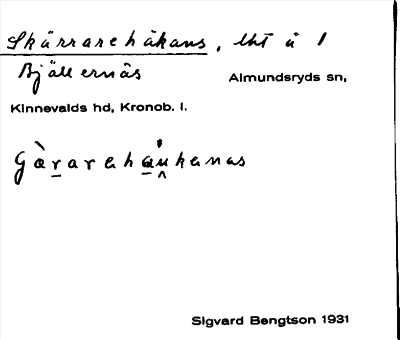 Skärrarehåkans, lht å 1
Bjällernäs Almundsryds sn,
Kinnevalds hd, Kronob. l.
Gæ̀rarahau̯kanas
Sigvard Bengtson 1931